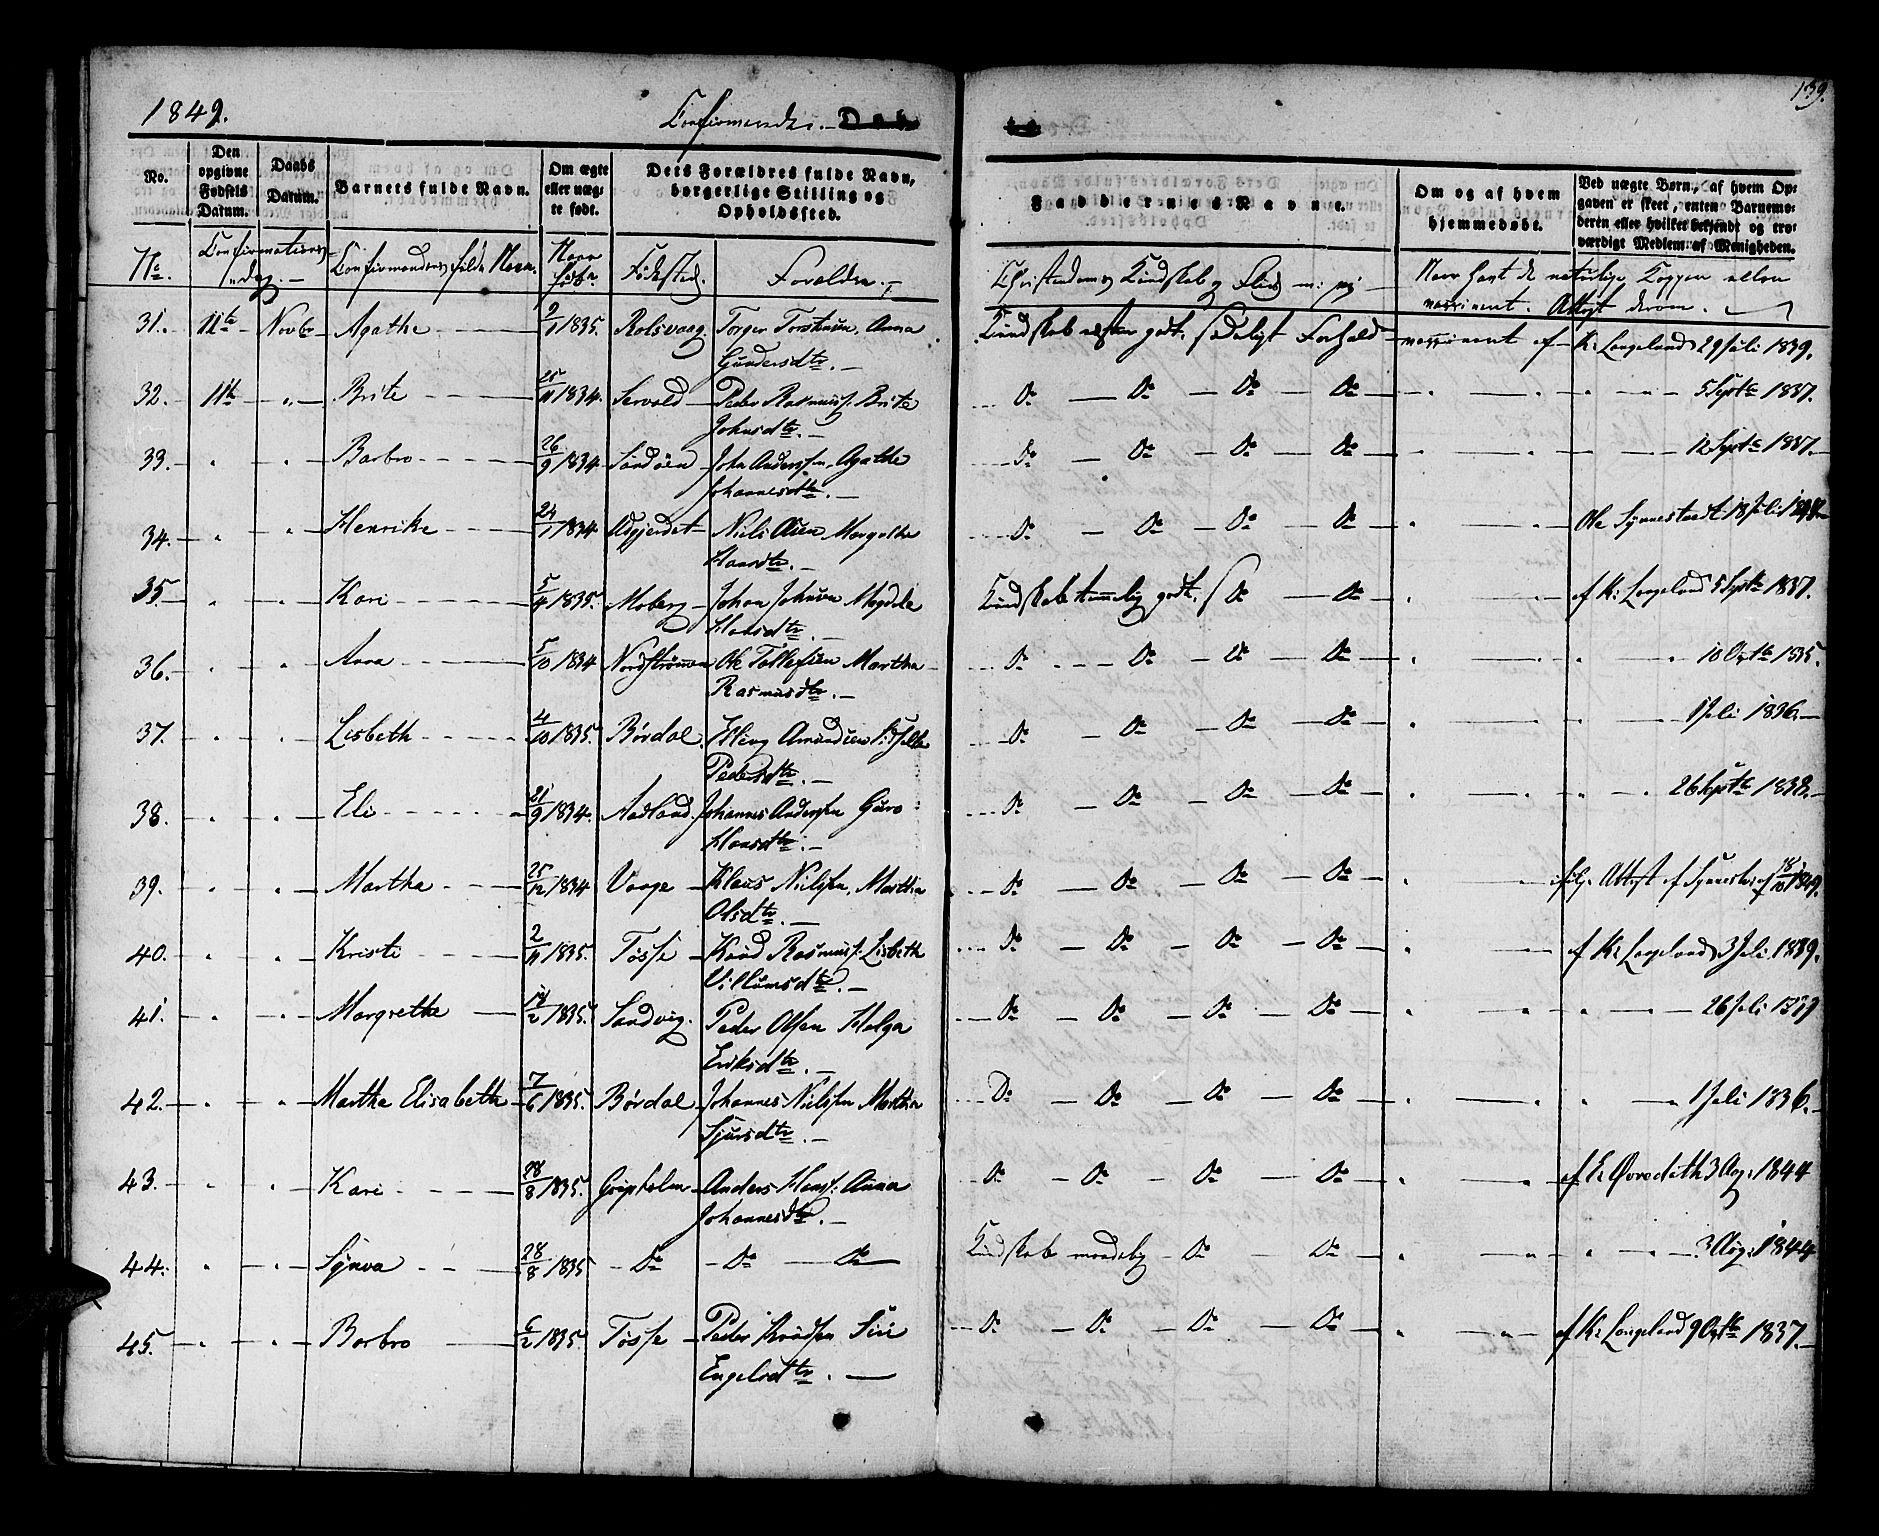 1849. Confirmerede. Døb te 139.
No. Den opgivne Fødsels Datum. Daabs Datum. Barnets fulde Navn. Om ægte eller uæg- te født. Dets Forældres fulde Navn, borgerlige Stilling og Opholdssted. Faddernes Navne. Om og af hvem hjemmedøbt. Ved uægte Børn, af hvem Op- gaven er skeet, enten Barnemo- deren eller hvilket bekjendt og tro- værdigt Medlem af Menigheden.
No. Confirmations- dag. Confirmandens fulde Navn. Naar født. Fødested. Forældre. Christendoms Kundskab og Flid Naar havt de naturlige Kopper eller vaccineret. Attest derom.
31. 11te Novbr Agathe 2/1 1835. Rolsvaag Torger Torstensen, Anna
Gundersdtr. Kundskab næsten godt. sædeligt Forhold vaccineret af K: Langeland 29 Juli 1839.
32. 11te Brite 25/11 1834. Servold Peder Rasmus. Brite
Johnsdtr. Do Do Do Do 5 Septb 1837.
33. Barbro 26/9 1834 Sandøen John Anderssen, Agathe
Johannesdtr. Do Do Do Do 12 Septb 1837.
34. Henrike 24/1 1834 Niels Olsen Margrethe
Hansdtr. Do Do Do Do Ole Synnestvedt 18 Juli
35. Kari 5/4 1835. Moberg Johan Johnsen Magdele
Hansdtr. Kundskab temmelig godt. Do Do af K: Langeland 5 Septb 1837.
36. Anna 5/10 1834 Nordstrømen Ole Tollefsen Martha
Rasmusdtr. Do Do Do Do 10 Octb 1835.
37. Lisbeth 4/10 1835. Børdal Elling Amundsen
Pedersdtr. Do Do Do Do 1 Juli 1836.
38. Eli 21/9 1834. Aadland. Johannes Anderssen Guro
Hansdtr. Do Do Do Do 26 Septb 1838.
39. Martha 25/12 1834 Vaage Klaus Nielssen, Martha
Olsdtr. Do Do Do Do Attest af 18/10 1849.
40. Kristi 2/11 1835. Tøsse Knud Rasmus. Lisbeth
Villumsdtr. Do Do Do Do af K: Langeland 3 Juli 1839.
41. Margrethe 18/2 1835. Sandvig. Peder Olsen Helga
Eriksdtr. Do Do Do Do 26 Juli 1839
42. Martha Elisabeth 7/6 1835. Børdal Johannes Nielssen Martha
Sjursdtr. Do Do Do Do 1 Juli 1836.
43. Kari 28/8 1835. Gripholm Anders Hans. Anna
Johannesdtr. Do Do Do Do af E: Øvredith 3 Aug: 1844
44. Synva 28/8 1835 Do Do Do Kundskab maadelig Do Do 3 Aug: 1844
45. Barbro 6/2 1835. Tøsse Peder Knudsen Siri
Engelsdtr. Do Do Do Do af K: Langeland 9 Octb 1837.